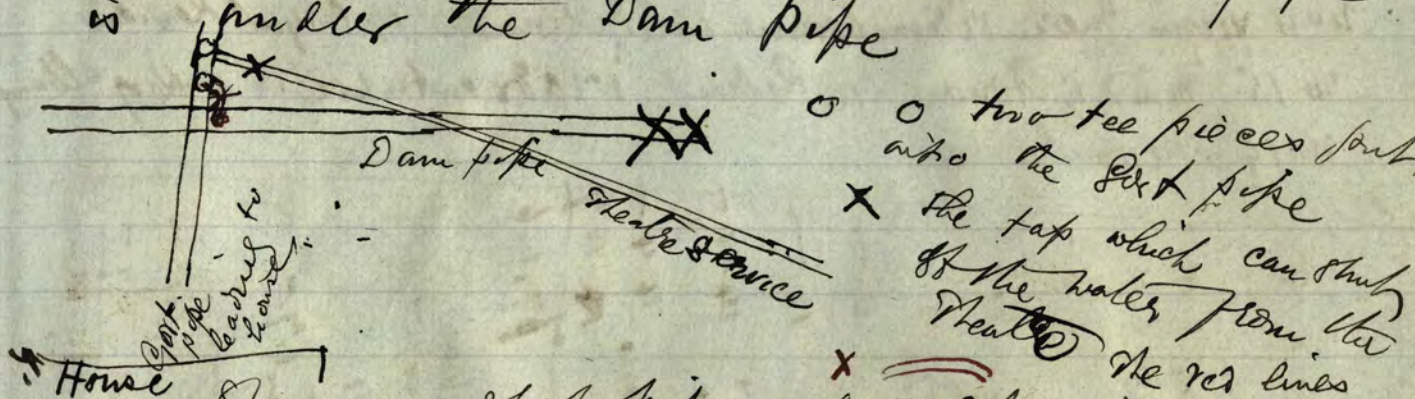 is under the Dam pipe
Dam pipe
Theatre service
Govt. pipe leading to house
House
o o two tee pieces put
into the Govt pipe
X the tap which can shut
off the water from the
Theatre The red lines
X